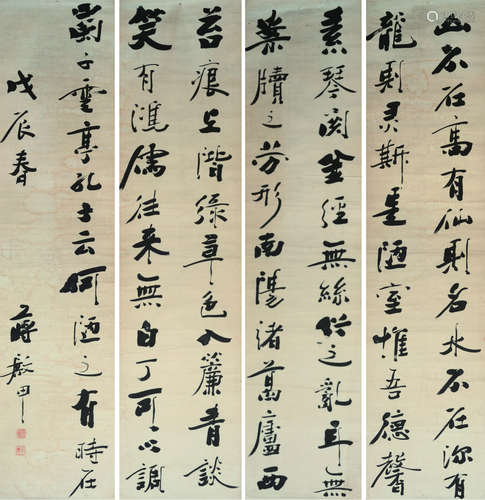 山不在高有仙則名水不在深有
龍則灵斯是陋室惟吾德馨
素琴閱金經無絲竹之亂耳無
案牘之劳形南陽諸葛廬西
苔痕上階綠草色入簾青談
笑有鴻儒往來無白丁可以調
蜀子雲亭孔子云何陋之有時在
戊辰春
蔣